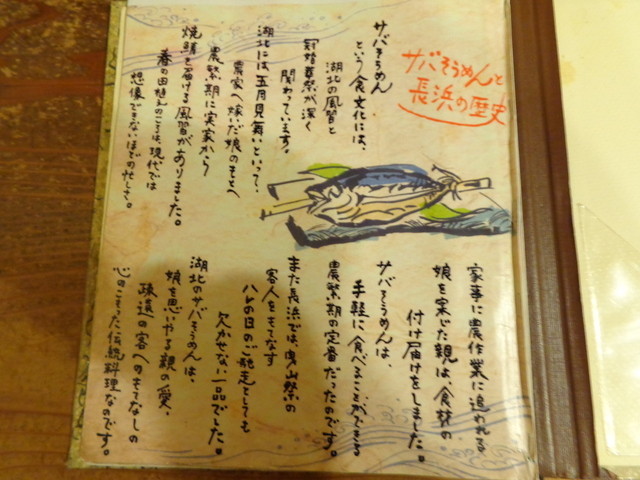 サバそうめんと
長浜の歴史
サバそうめん
という食文化には、
湖北の風習と
冠婚葬祭が深く
関わっています。
湖北には五月見舞いといって、
農家へ嫁いだ娘のもとへ
農繁期に実家から
焼鯖を届ける風習がありました。
春の田植えのころは、現代では
想像できないほどの忙しさ。
家事に農作業に追われる
娘を案じた親は、食材の
付け届けをしました。
サバそうめんは、
手軽に食べることができる
農繁期の定番だったのです。
また長浜では、曳山祭の
客人をもてなす
ハレの日のご馳走としても
欠かせない一品でした。
湖北のサバそうめんは、
娘を思いやる親の愛、
疎遠の客へのもてなしの
心のこもった伝統料理なのです。